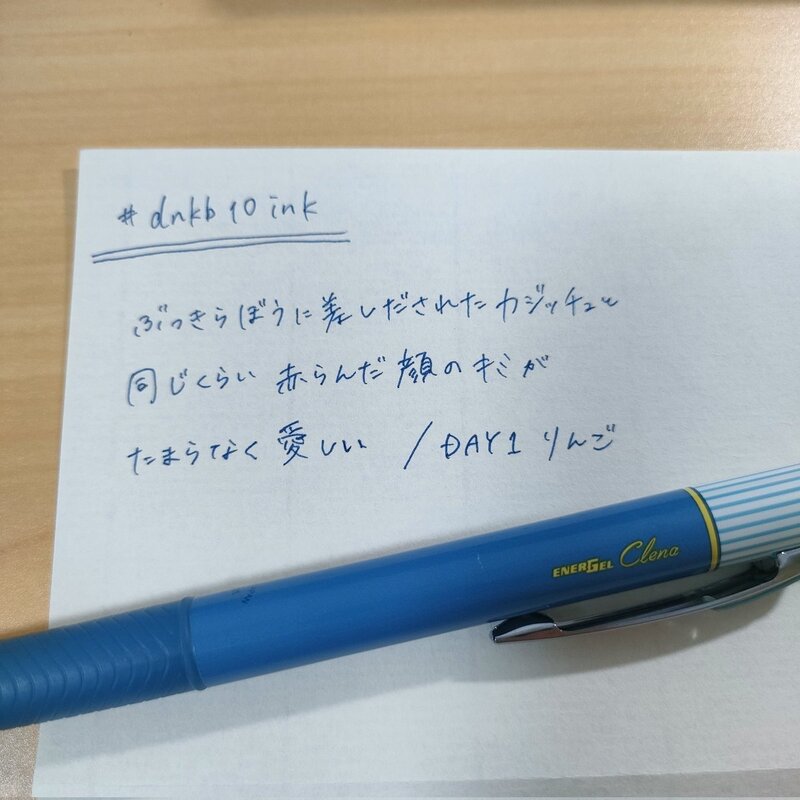 #dnkb10ink
ぶっきらぼうに差しだされたカジッチュと
同じくらい 赤らんだ顔のキミが
たまらなく愛しい /DAY1 りんご
ENERGEL Clena